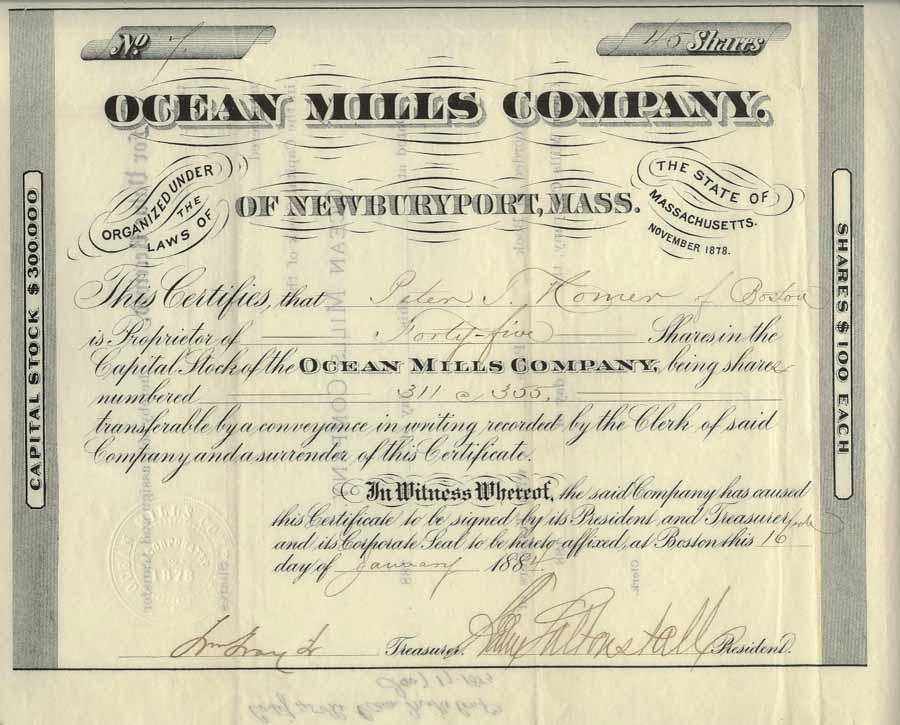 No. 7
45 Shares
OCEAN MILLS COMPANY.
ORGANIZED UNDER
THE
LAWS OF
OF NEWBURYPORT, MASS.
THE STATE OF
MASSACHUSETTS.
NOVEMBER 1878.
CAPITAL STOCK $300,000
SHARES $100 EACH
This Certifies, that Peter T. Homer of Boston
is Proprietor of Forty-five Shares in the
Capital Stock of the OCEAN MILLS COMPANY, being shares
numbered 311 @ 355,
transferable by a conveyance in writing recorded by the Clerk of said
Company and a surrender of this Certificate.
In Witness Whereof, the said Company has caused
this Certificate to be signed by its President and Treasurer
and its Corporate Seal to be hereto affixed, at Boston this 16
day of January 1884
OCEAN MILLS
INCORPORATED
1878
Wm Gray Jr Treasurer. Saltonstall President.